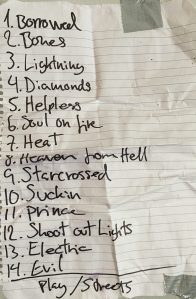 1. Borrowed
2. Bones
3. Lightning
4. Diamonds
5. Helpless
6. Soul on fire
7. Heat
8. Heaven from Hell
9. Starcrossed
10. Suckin
11. Prince
12. Shoot out Lights
13. Electric
14. Evil
Play/Streets